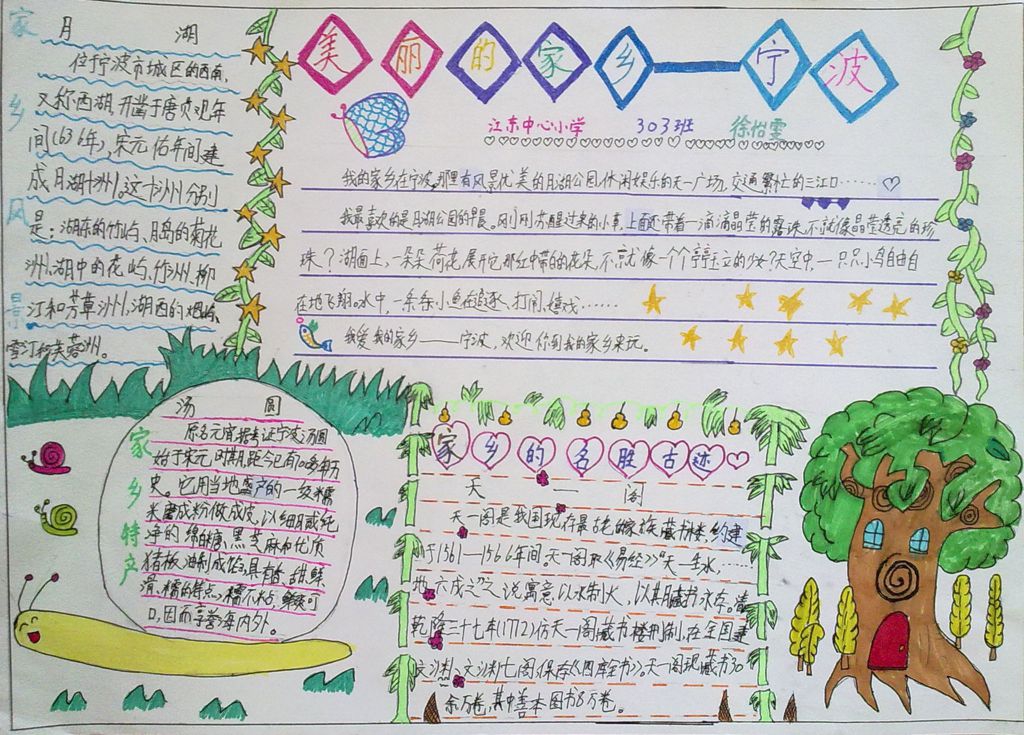 美丽的家乡——宁波
江东中心小学 303班 徐怡雯
我的家乡在宁波,那里有风景优美的月湖公园,休闲娱乐的天一广场,交通繁忙的三江口……
我最喜欢的是月湖公园的早晨。刚刚苏醒过来的小草,上面还带着一滴滴晶莹的露珠,不就像晶莹透亮的珍
珠?湖面上,一朵朵荷花,展开它那红中带的花朵,不就像一个个亭亭玉立的少女?天空中,一只只小鸟自由自
在地飞翔。水中,一条条小鱼在追逐、打闹、嬉戏……
我爱我的家乡——宁波,欢迎你到我的家乡来玩。
家乡风景
月湖
位于宁波市城区的西南,
又称西湖,开凿于唐贞观年
间(636年),宋元佑年间建
成月湖十洲。这十洲分别
是:湖东的竹屿、月岛的菊花
洲,湖中的花屿、竹洲、柳
汀和芳草洲,湖西的烟屿、
雪汀和芙蓉洲。
家乡特产
汤圆
原名元宵,据考证宁波汤圆
始于宋元时期,距今已有700多年历
史。它用当地盛产的一级糯
米磨成粉做成皮,以细腻或纯
净的绵白糖,黑芝麻和优质
猪板油制成馅,具有香、甜、鲜、
滑、糯的特点,糯不粘,鲜爽可
口,因而享誉海内外。
家乡的名胜古迹
天一阁
天一阁是我国现存最老的家族藏书楼,约建
于1561—1566年间。天一阁取《易经》"天一生水,……
地六成之"之说寓意,以水制火,以其藏书永存。清
乾隆三十七年(1772)仿天一阁藏书楼刑制,在全国建
文渊、文溯七阁,保存《四库全书》。天一阁现藏书30
余万卷,其中善本图书8万卷。